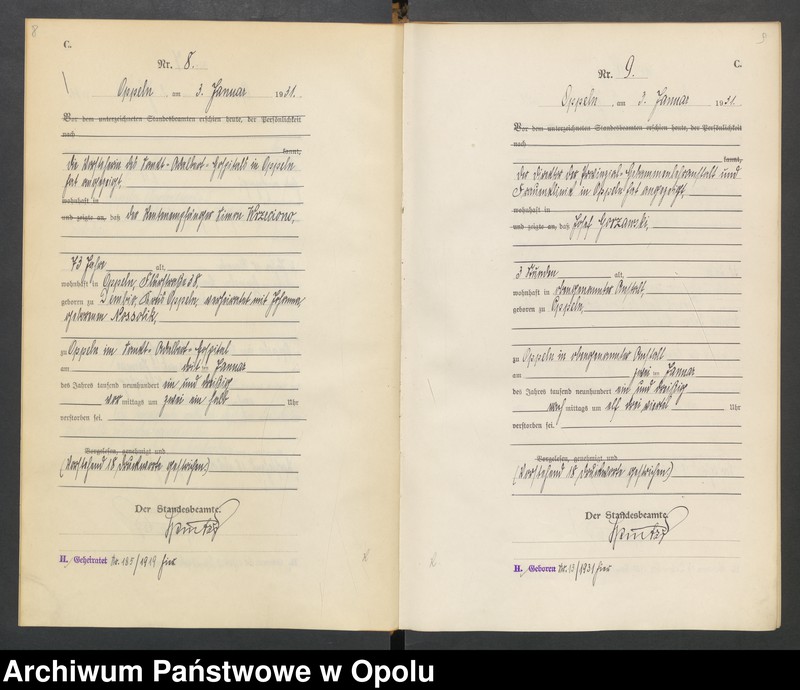 8
C.
Nr. 8.
Oppeln am 3. Januar 1931.
Vor dem unterzeichneten Standesbeamten erschien heute, der Persönlichkeit
nach
kannt,
die Vorsteherin des Sankt-Adalbert-Hospitals in Oppeln
hat angezeigt,
wohnhaft in
und zeigte an, daß der Rentenempfänger Simon Wrzeciono,
73 Jahre alt,
wohnhaft in Oppeln, Flurstraße 38,
geboren zu Dembio, Kreis Oppeln, verheiratet mit Johanna
geborenen Nossollik,
zu Oppeln im Sankt-Adalbert-Hospital
am ten Januar
des Jahres tausend neunhundert ein und dreißig
vor mittags um zwei ein halb Uhr
verstorben sei.
Vorgelesen, genehmigt und
(Vorstehend 18 Druckworte gestrichen)
Der Standesbeamte.
H. Geheiratet Nr. 185/1919 hier
9
C.
Nr. 9.
Oppeln, am 3. Januar 1931.
Vor dem unterzeichneten Standesbeamten erschien heute, der Persönlichkeit
nach
kannt,
der Direktor der Provinzial-Hebammenlehranstalt und
Frauenklinik in Oppeln hat angezeigt,
wohnhaft in
und zeigte an, daß Josef Gorzawski,
3 Stunden alt,
wohnhaft in obengenannter Anstalt,
geboren zu Oppeln,
zu Oppeln in obengenannter Anstalt
am zweiten Januar
des Jahres tausend neunhundert ein und dreißig
nach mittags um elf drei viertel Uhr
verstorben sei.
Vorgelesen, genehmigt und
(Vorstehend 18 Druckworte gestrichen)
Der Standesbeamte.
H. Geboren Nr. 13/1931 hier
Archiwum Państwowe w Opolu